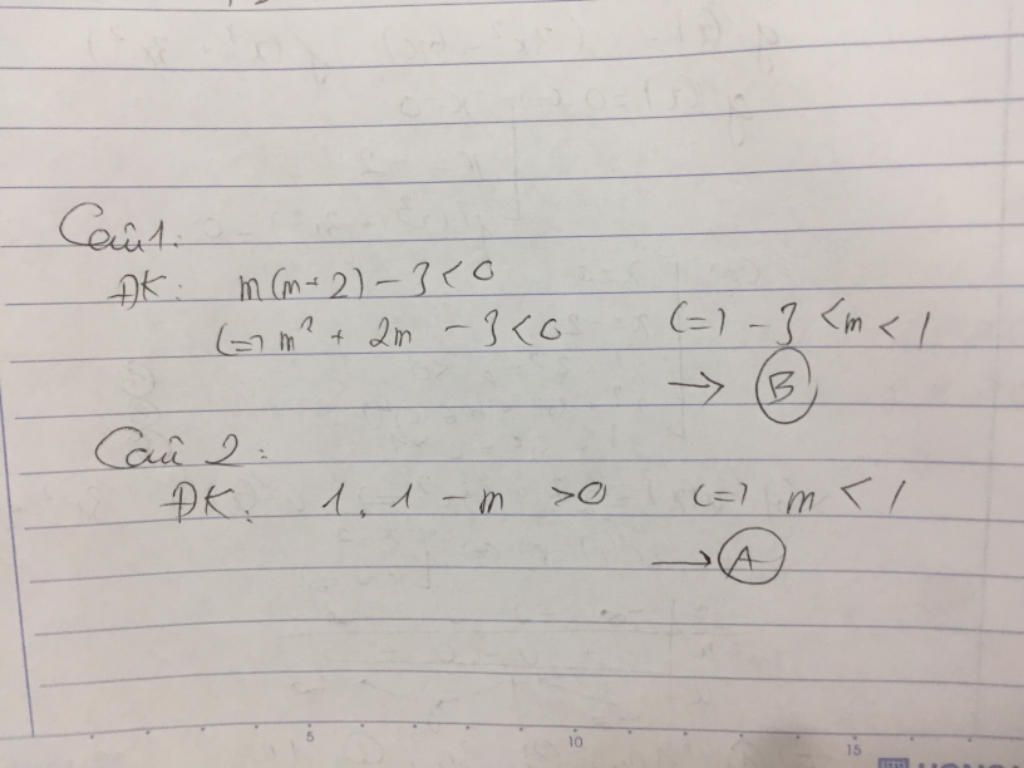 Câu 1:
ĐK: m(m+2) - 3 < 0
(=) m² + 2m - 3 < 0 (=) -3 < m < 1
→ B
Câu 2:
ĐK: 1.1 - m > 0 (=) m < 1
→ A
5 10 15